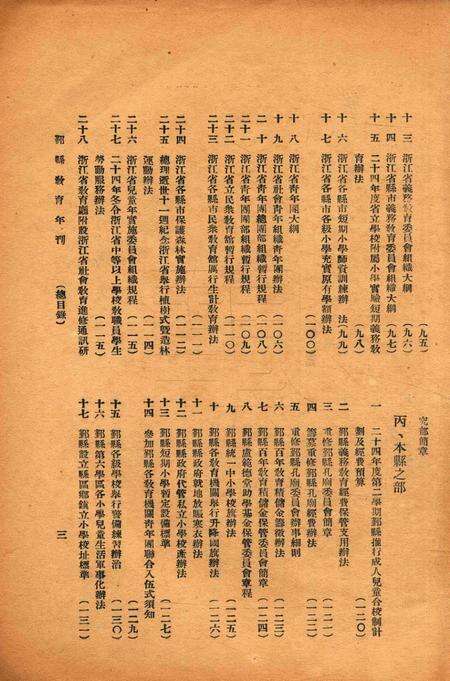 十三　浙江省義務教育委員會組織大綱　(九五)
十四　浙江省縣市義務教育委員會組織大綱　(九六)
十五　二十四年度省立學校附屬小學實驗短期義務教　(九七)
育辦法　(九八)
十六　浙江省縣市短期小學師資訓練辦法　(九九)
十七　浙江省各縣市各級小學充實原有學額辦法　(一〇〇)
十八　浙江省青年團大綱
十九　浙江省社會青年組織青年團辦法　(一〇六)
二十　浙江省青年團總團部組織暫行規程　(一〇八)
二十一　浙江省青年團團部組織暫行規程　(一〇九)
二十二　浙江省立民衆教育館暫行規程　(一一〇)
二十三　浙江省各縣市民衆教育館厲行生計教育辦法
二十四　浙江省各縣市保護森林實施辦法　(一一二)
二十五　總理逝世十一週紀念浙江省舉行植樹式暨造林
運動辦法　(一一四)
二十六　浙江省兒童年實施委員會組織規程　(一一五)
二十七　二十四年冬令浙江省中等以上學校教職員學生
勞動服務辦法　(一一五)
二十八　浙江省教育廳附設浙江省社會教育進修通訊研
鄞縣教育年刊　(總目錄)　三
究部簡章
丙、本縣之部
一　二十四年度第二學期鄞縣推行成人兒童合校制計
劃及經費預算　(一二〇)
二　鄞縣義務教育經費保管支用辦法
三　重修鄞縣孔廟委員會簡章　(一二一)
四　籌募重修鄞縣孔廟經費辦法　(一二二)
五　重修鄞縣孔廟委員會辦事細則
六　鄞縣百年教育積儲金籌徵辦法　(一二三)
七　鄞縣百年教育積儲金保管委員會簡章　(一二四)
八　鄞縣盧範德堂助學基金保管委員會章程
九　鄞縣統一中小學校旗辦法　(一二五)
十　鄞縣各教育機關舉行升降國旗辦法　(一二六)
十一　鄞縣縣政府就地放賑寒衣辦法
十二　鄞縣縣政府代管私立小學校產辦法
十三　鄞縣短期小學暫定設備標準　(一二七)
十四　參加鄞縣各教育機關青年團聯合入伍式須知
十五　鄞縣各級學校舉行警備練習辦治　(一二九)
十六　鄞縣第六學區各小學兒童生活軍事化辦法　(一三〇)
十七　鄞縣設立縣區鄉鎮立小學校址標準　(一三一)